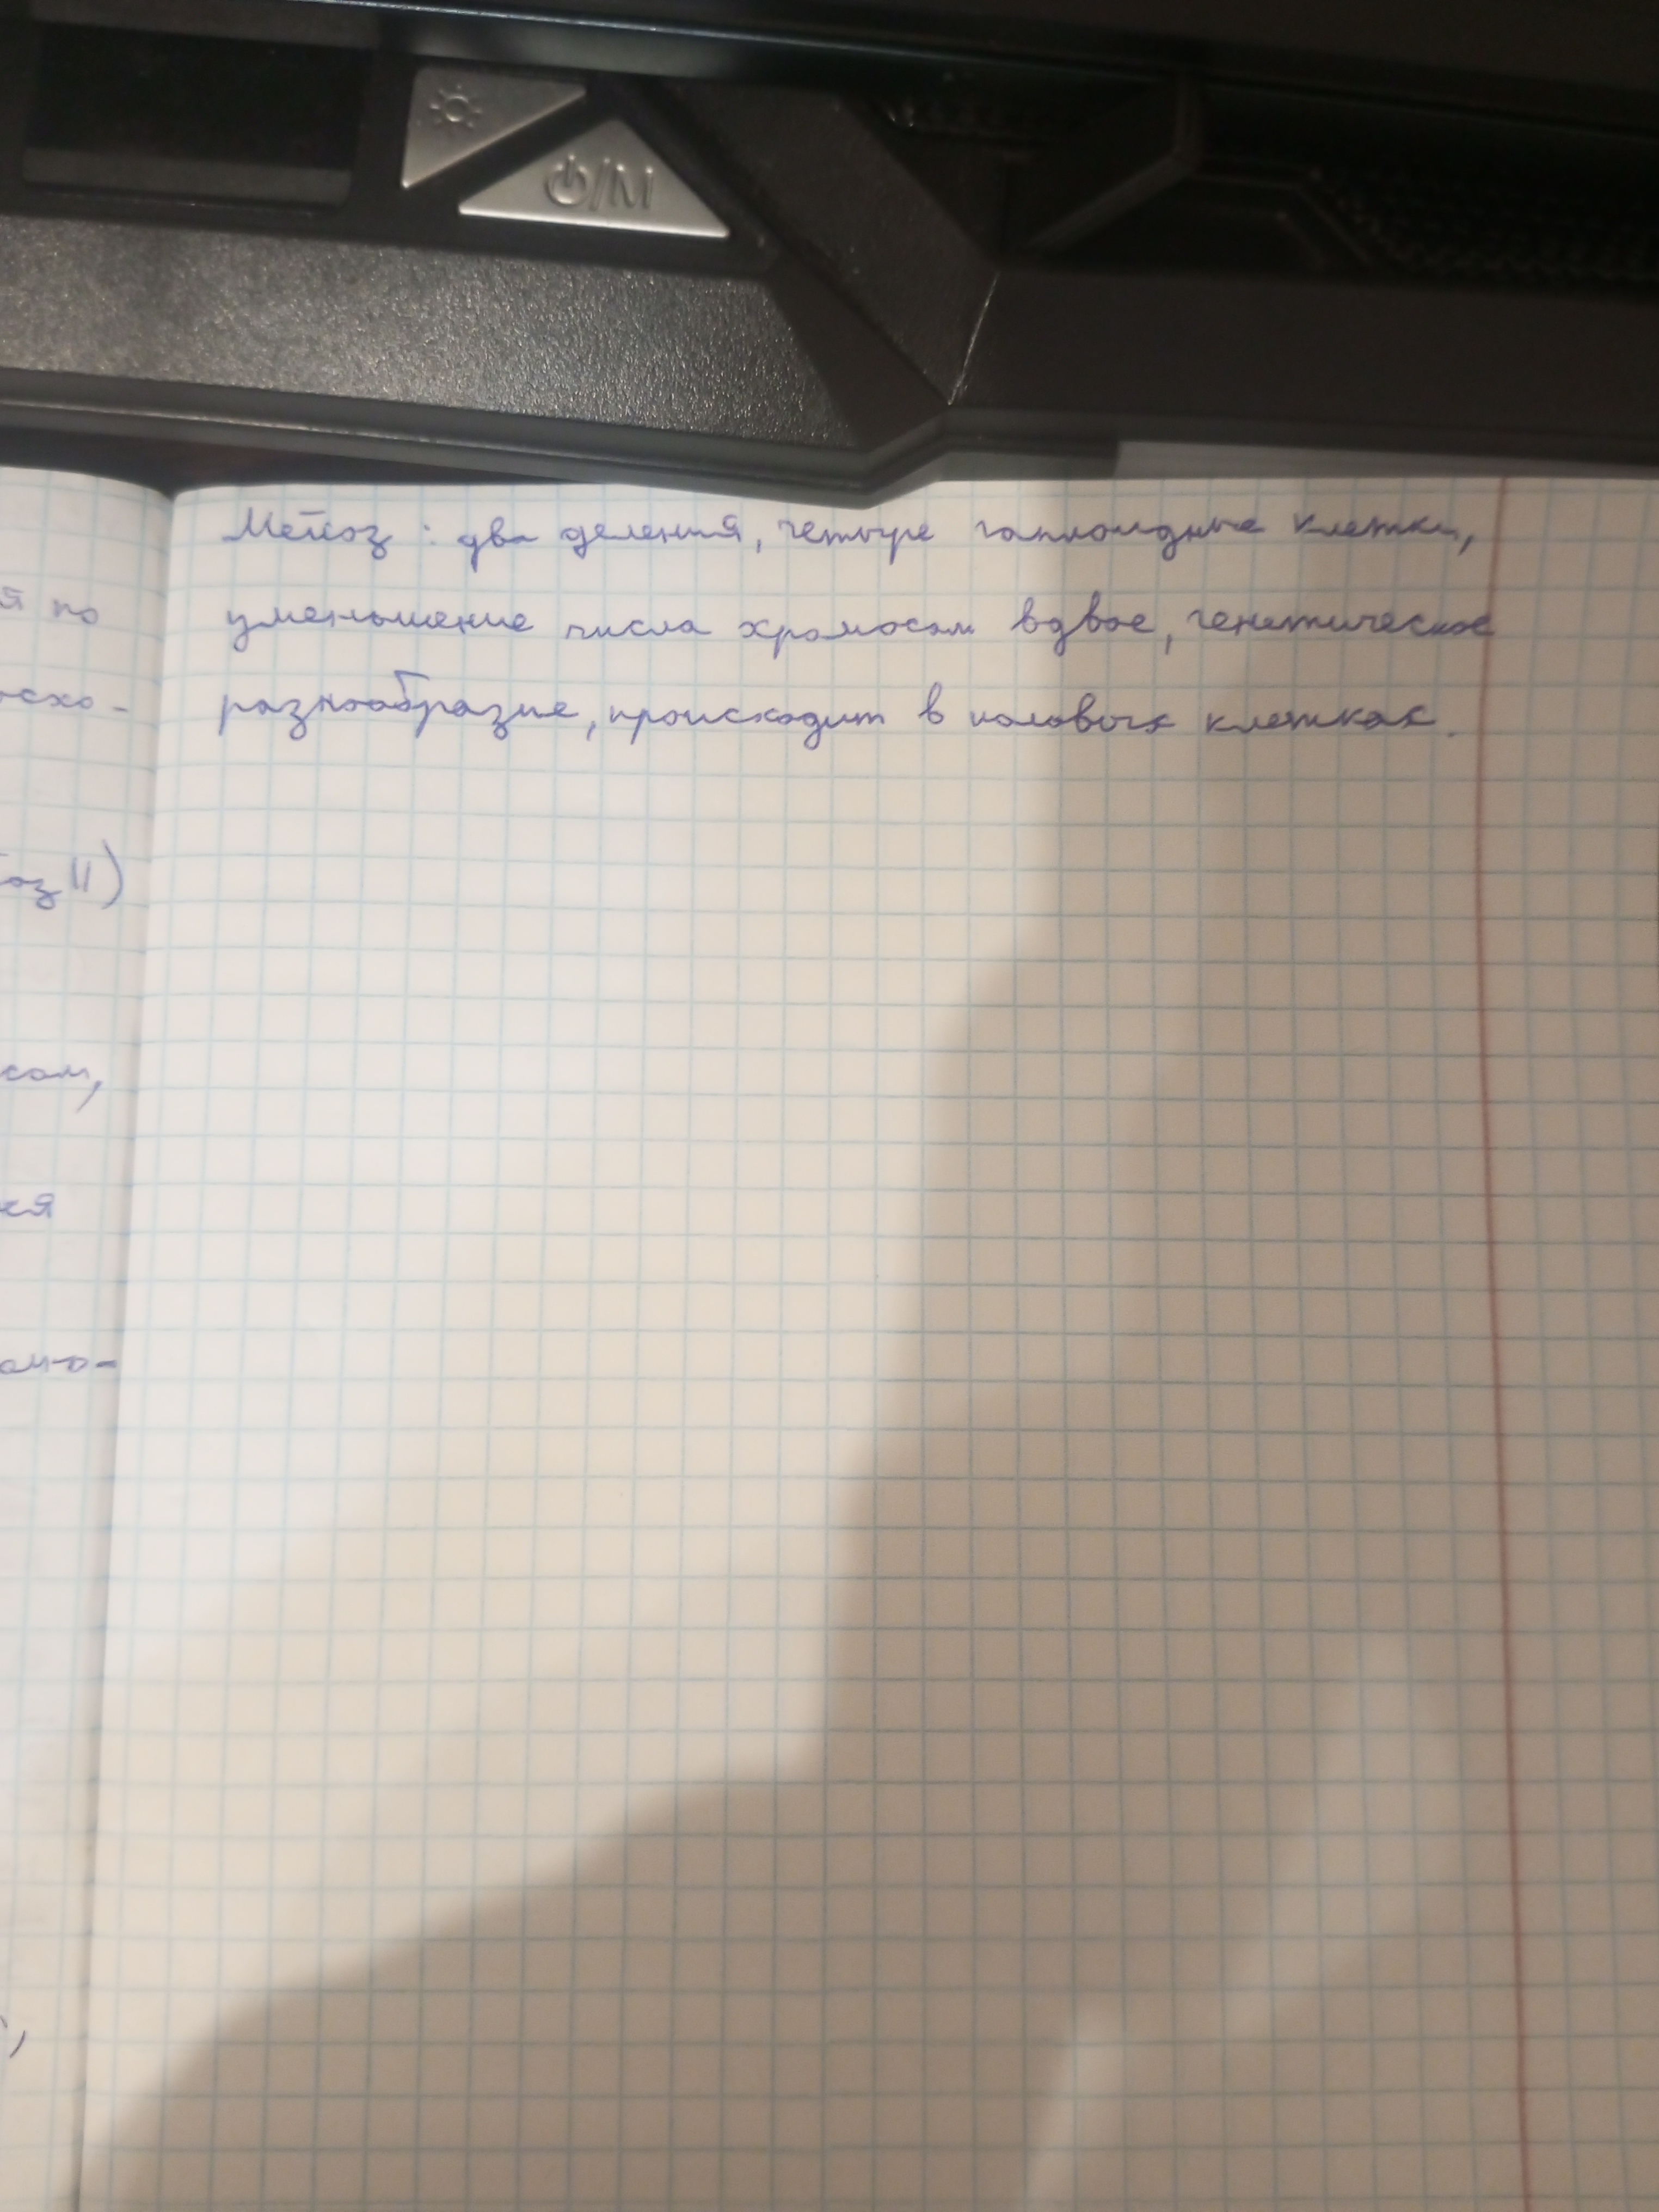 ⏻/M
Мейоз: два деления, четыре гаплоидные клетки,
уменьшение числа хромосом вдвое, генетическое
разнообразие, происходит в половых клетках.
й по
осхо-
оз II)
сом,
ся
омо-